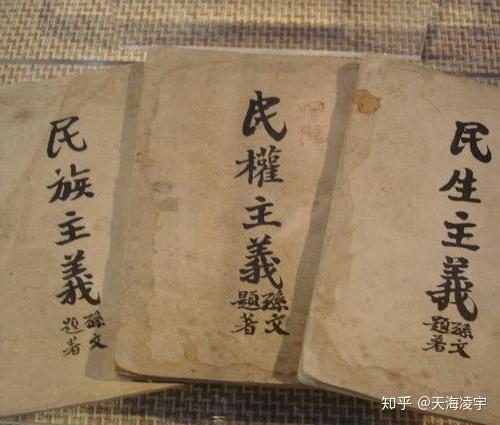 民族主義
孫文
題著
民權主義
孫文
題著
民生主義
孫文
題著
知乎 @天海凌宇